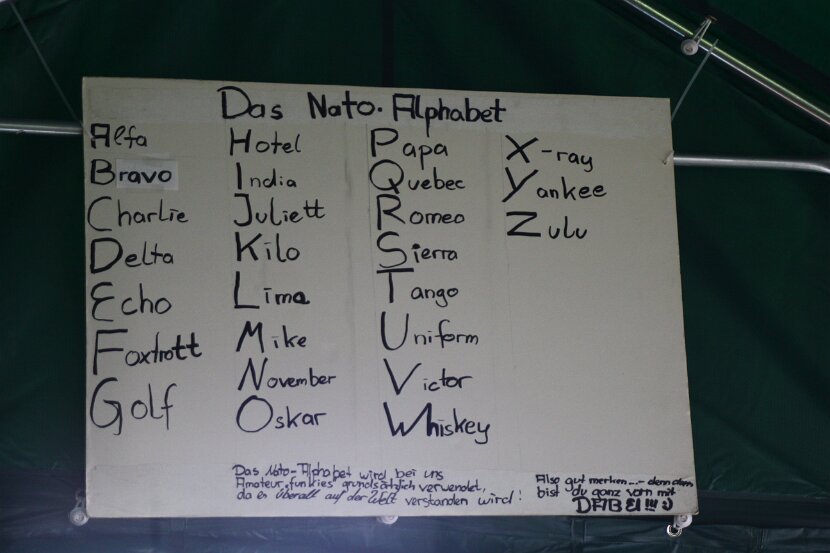 Das Nato-Alphabet
Alfa
Bravo
Charlie
Delta
Echo
Foxtrott
Golf
Hotel
India
Juliett
Kilo
Lima
Mike
November
Oskar
Papa
Quebec
Romeo
Sierra
Tango
Uniform
Victor
Whiskey
X-ray
Yankee
Zulu
Das Nato-Alphabet wird bei uns
Amateurfunkies grundsätzlich verwendet,
da es überall auf der Welt verstanden wird!
Also gut merken...- denn dann
bist du ganz vorn mit
dabei!!! :)